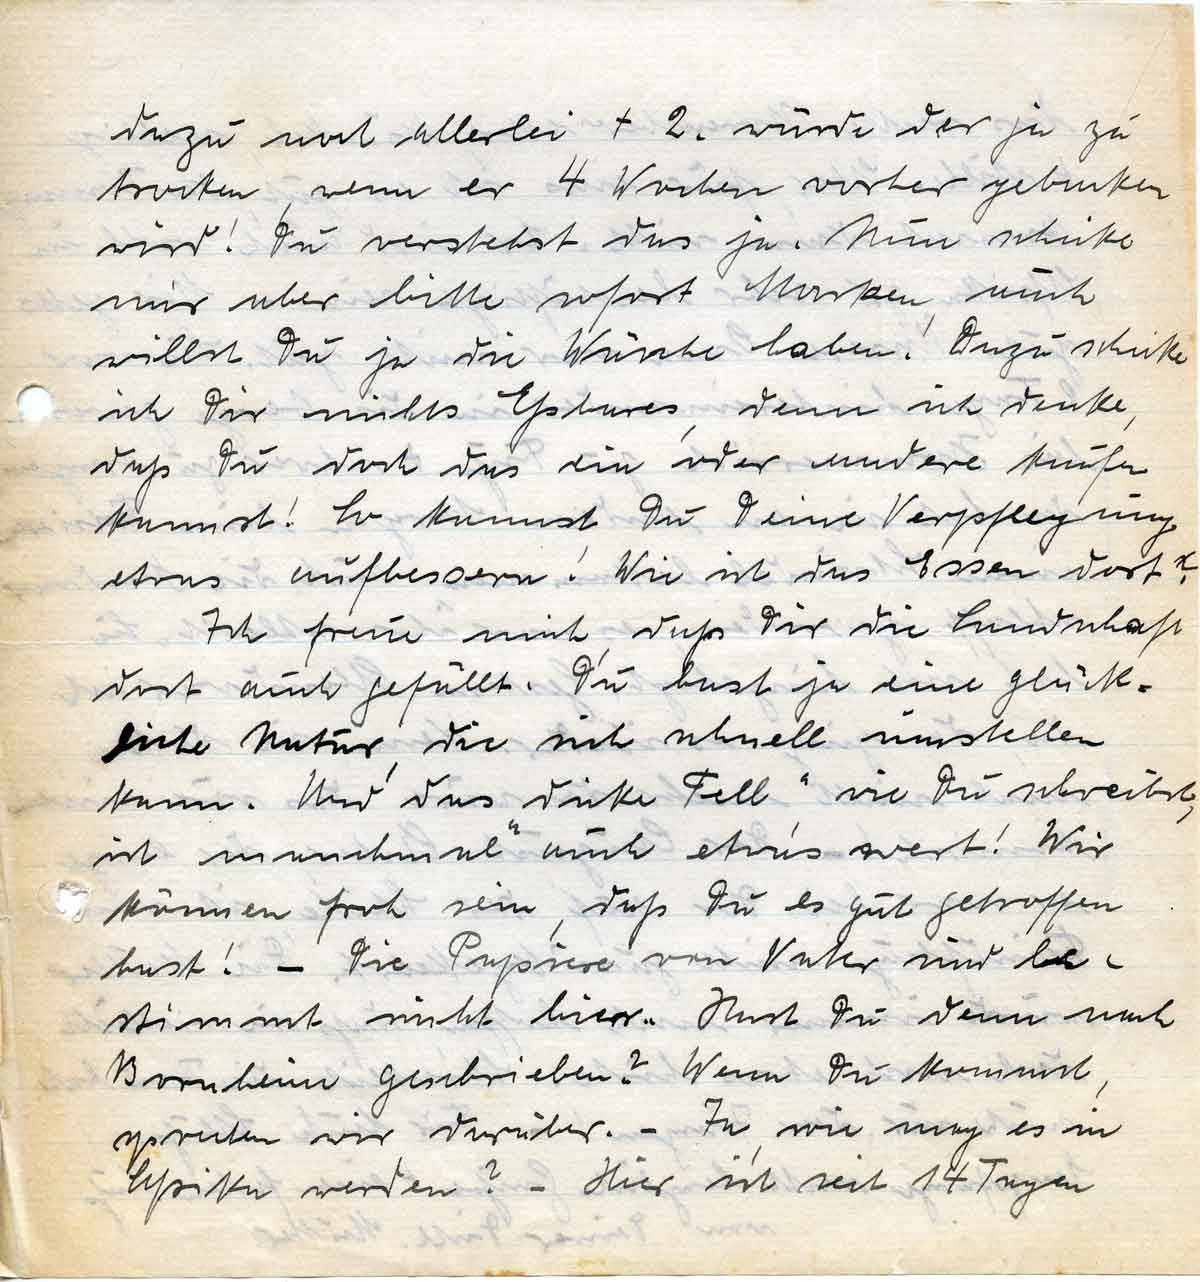 dazu noch allerlei + 2. würde der ja zu
trocken, wenn er 4 Wochen vorher gebacken
wird! Du verstehst das ja. Nun schicke
mir aber bitte sofort Marken, auch
willst Du ja die Wäsche haben! Dazu schicke
ich Dir nichts Eßbares, denn ich denke,
daß Du doch das ein oder andere kaufen
kannst! So kannst Du Deine Verpflegung
etwas aufbessern! Wie ist das Essen dort?
Ich freue mich, daß Dir die Landschaft
dort auch gefällt. Du hast ja eine glück-
liche Natur, die sich schnell umstellen
kann. Und das dicke Fell" wie Du schreibst,
ist manchmal" auch etwas wert! Wir
können froh sein, daß Du es gut getroffen
hast! – Die Papiere von Vater sind be-
stimmt nicht hier. Hast Du denn nach
Bornheim geschrieben? Wenn Du kommst,
sprechen wir darüber. – Ja, wie mag es in
werden? – Hier ist seit 14 Tagen